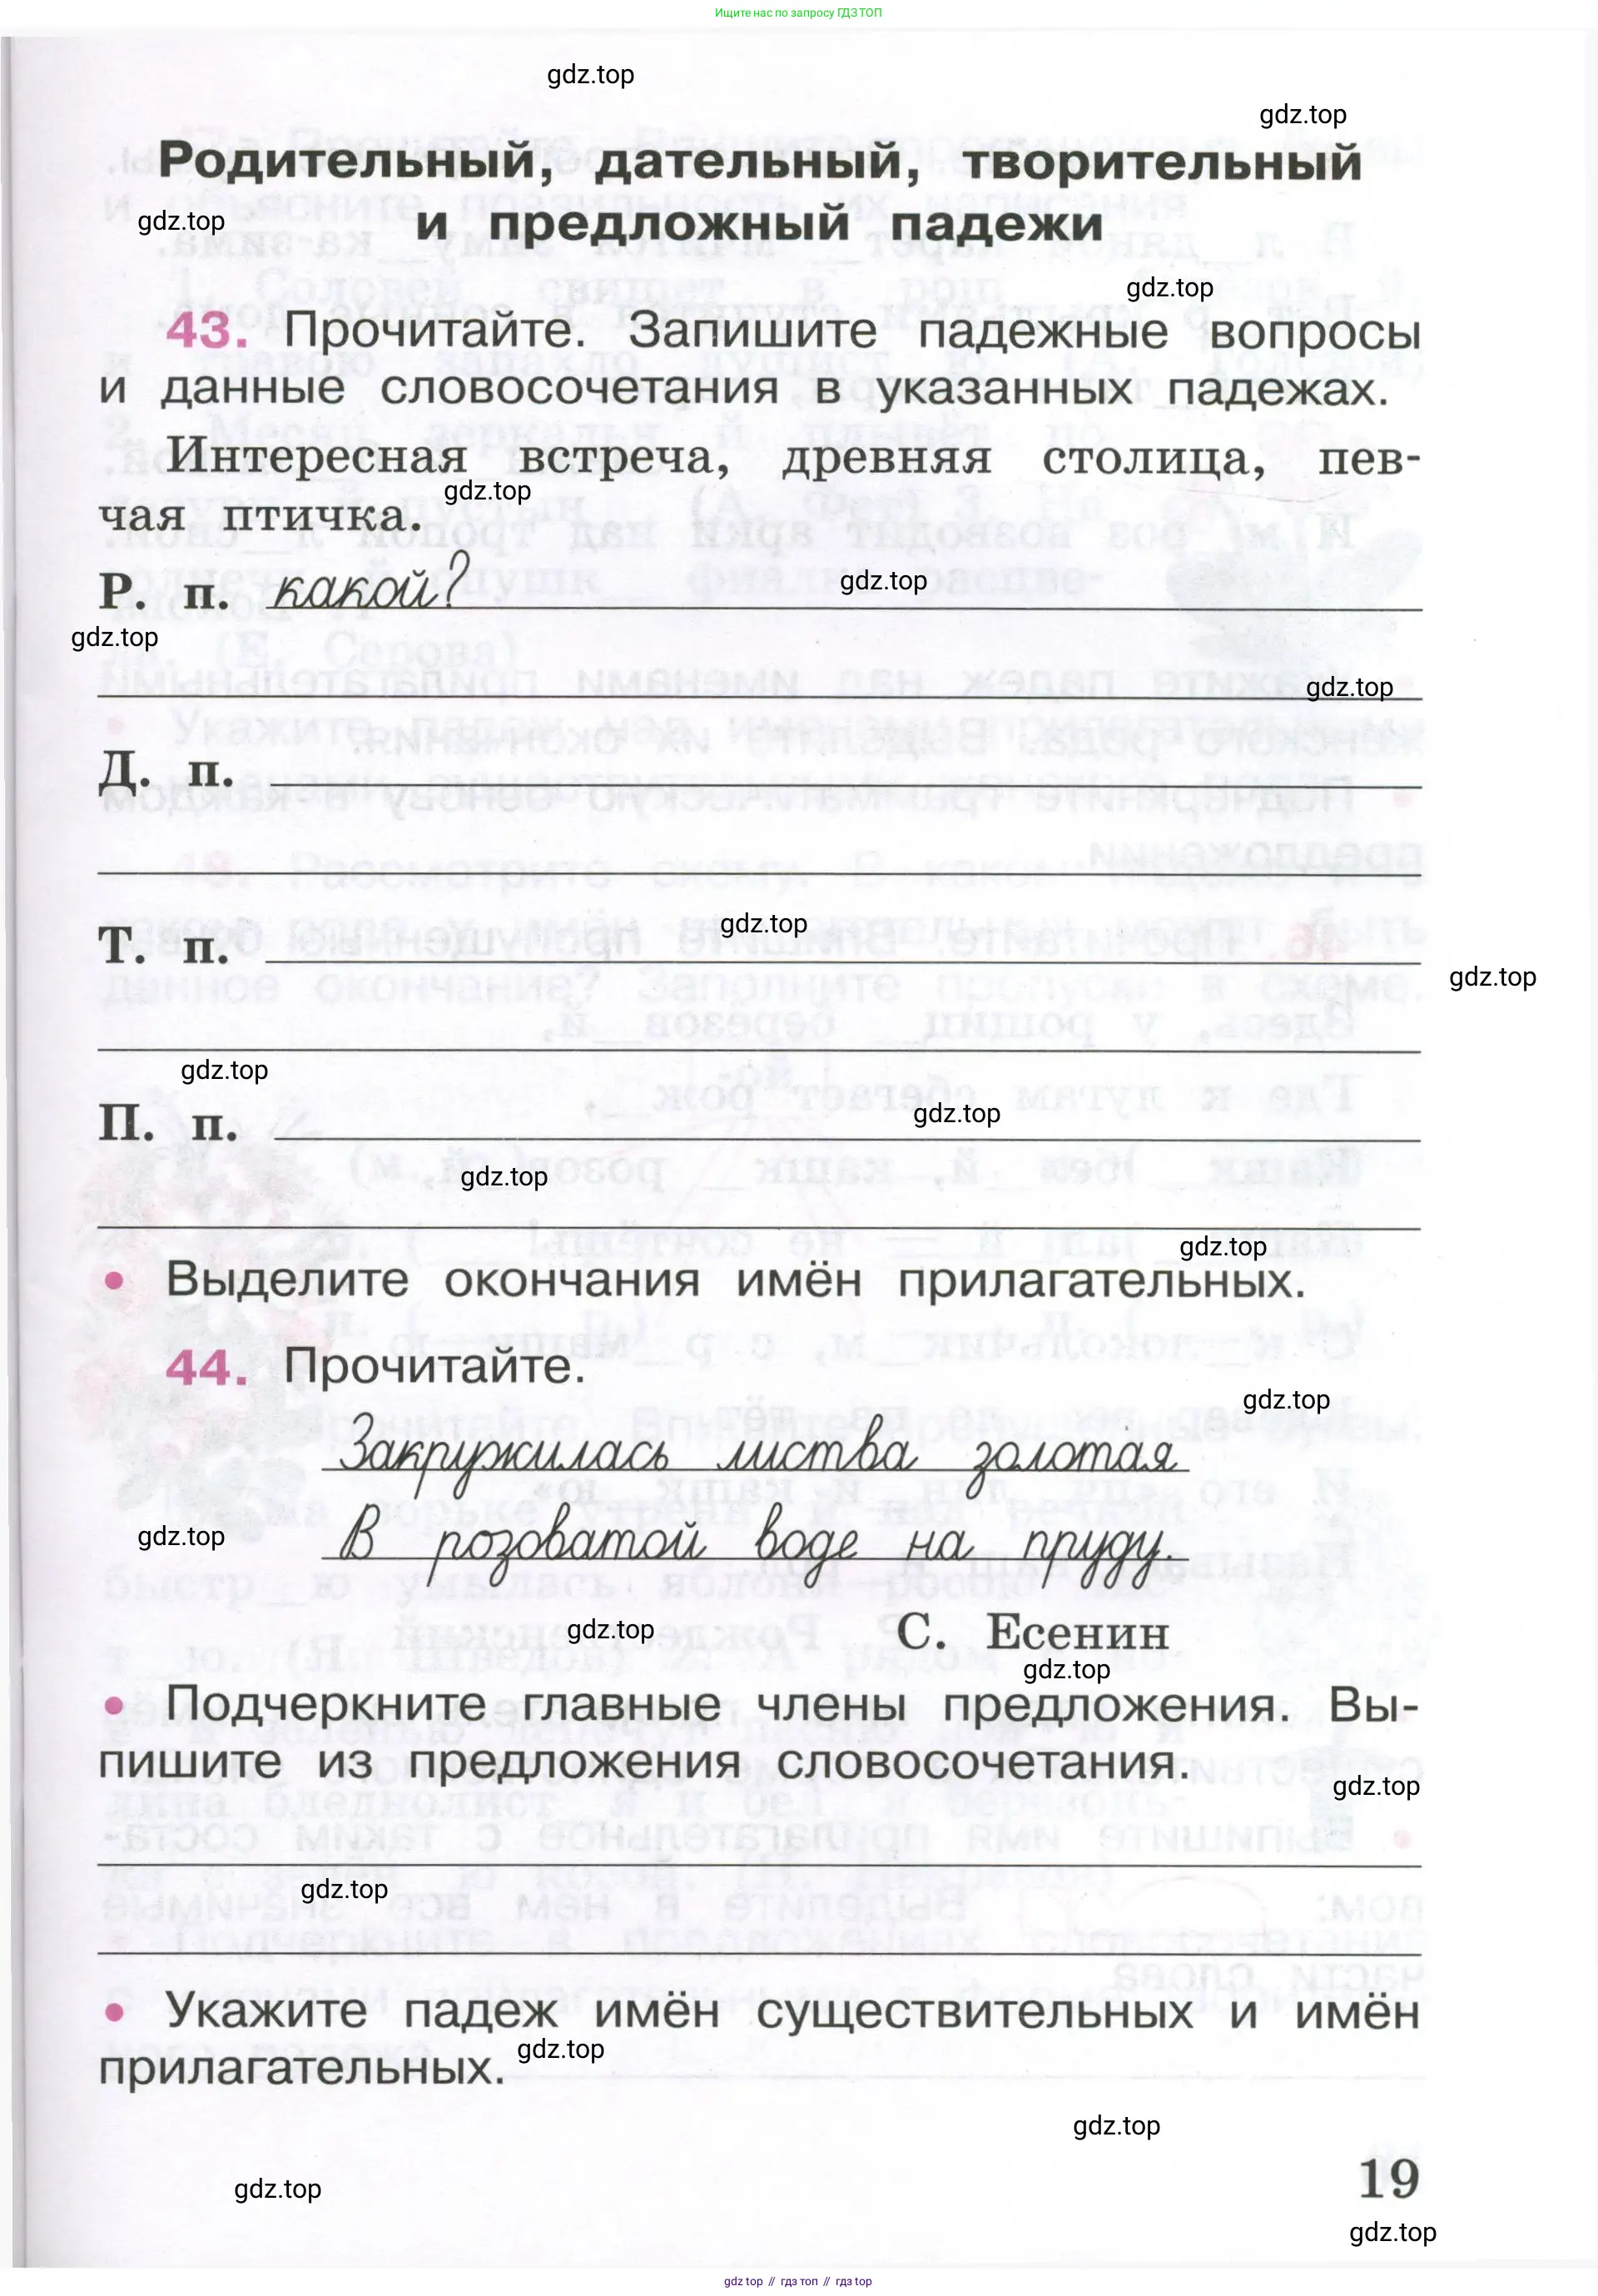 Ищите нас по запросу ГДЗ ТОП
gdz.top
gdz.top
Родительный, дательный, творительный
gdz.top
и предложный падежи
gdz.top
43. Прочитайте. Запишите падежные вопросы
и данные словосочетания в указанных падежах.
Интересная встреча, древняя столица, пев-
gdz.top
чая птичка.
Р. п. какой?
gdz.top
gdz.top
gdz.top
Д. п.
gdz.top
Т. п.
gdz.top
gdz.top
gdz.top
П. п.
gdz.top
gdz.top
• Выделите окончания имён прилагательных.
44. Прочитайте.
gdz.top
Закружилась листва золотая
gdz.top
В розоватой воде на пруду.
gdz.top
С. Есенин
gdz.top
• Подчеркните главные члены предложения. Вы-
пишите из предложения словосочетания.
gdz.top
gdz.top
• Укажите падеж имён существительных и имён
gdz.top
прилагательных.
gdz.top
19
gdz.top
gdz.top
gdz top // гдз топ // гдз top